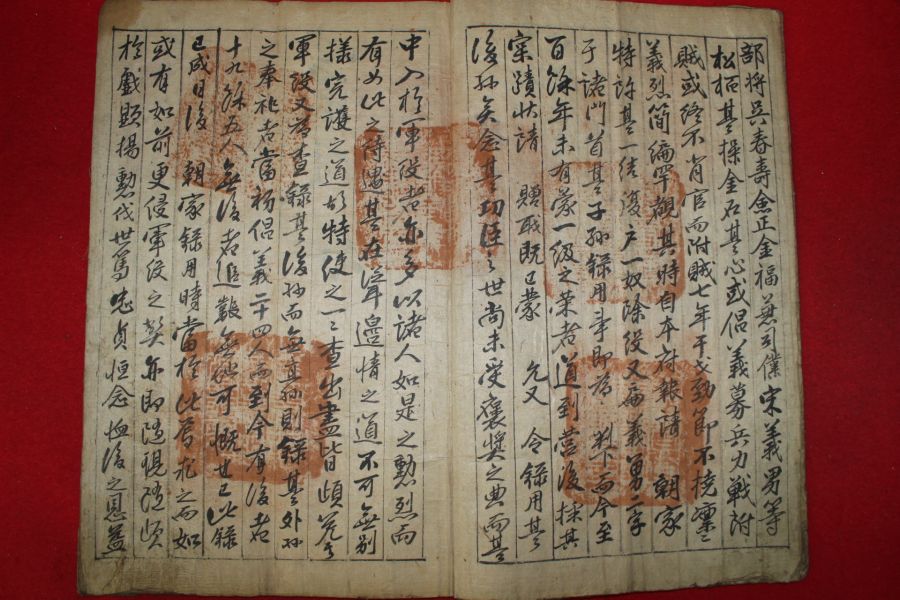 部將吳春壽僉正金福 司僕宋義男等
松栢其操金石其心或倡義募兵力戰 
賊或終不肯官而附賊七年干戈勁節不撓凜
義烈簡編罕覩其時自本府報請 朝家
特許其一結復戶一奴除役又 義勇二字
于諸門首其子孫錄用事即為 判下而今至
百餘年未有蒙一級之榮者道到營後採其
實蹟狀請 贈職既已蒙 允又 令錄用其
後孫矣念其功 之世尚未受褒奬之典而其
中入於軍役者亦多以諸人如是之勳烈而
有如此之待遇其在 邊情之道不可無別
樣完護之道 特使之一一查出盡皆頉 
軍役又為查錄其後孫而無其孫則錄其外孫
之奉祀者當初倡義二十四人而到今有後者
十九餘五人無後者追 可慨也已此錄
已成日後 朝家錄用時當於此 之而如
或有如前更侵軍役之弊亦即隨現隨頉
於戲顯揚勳伐世篤忠貞恒念 後之恩益